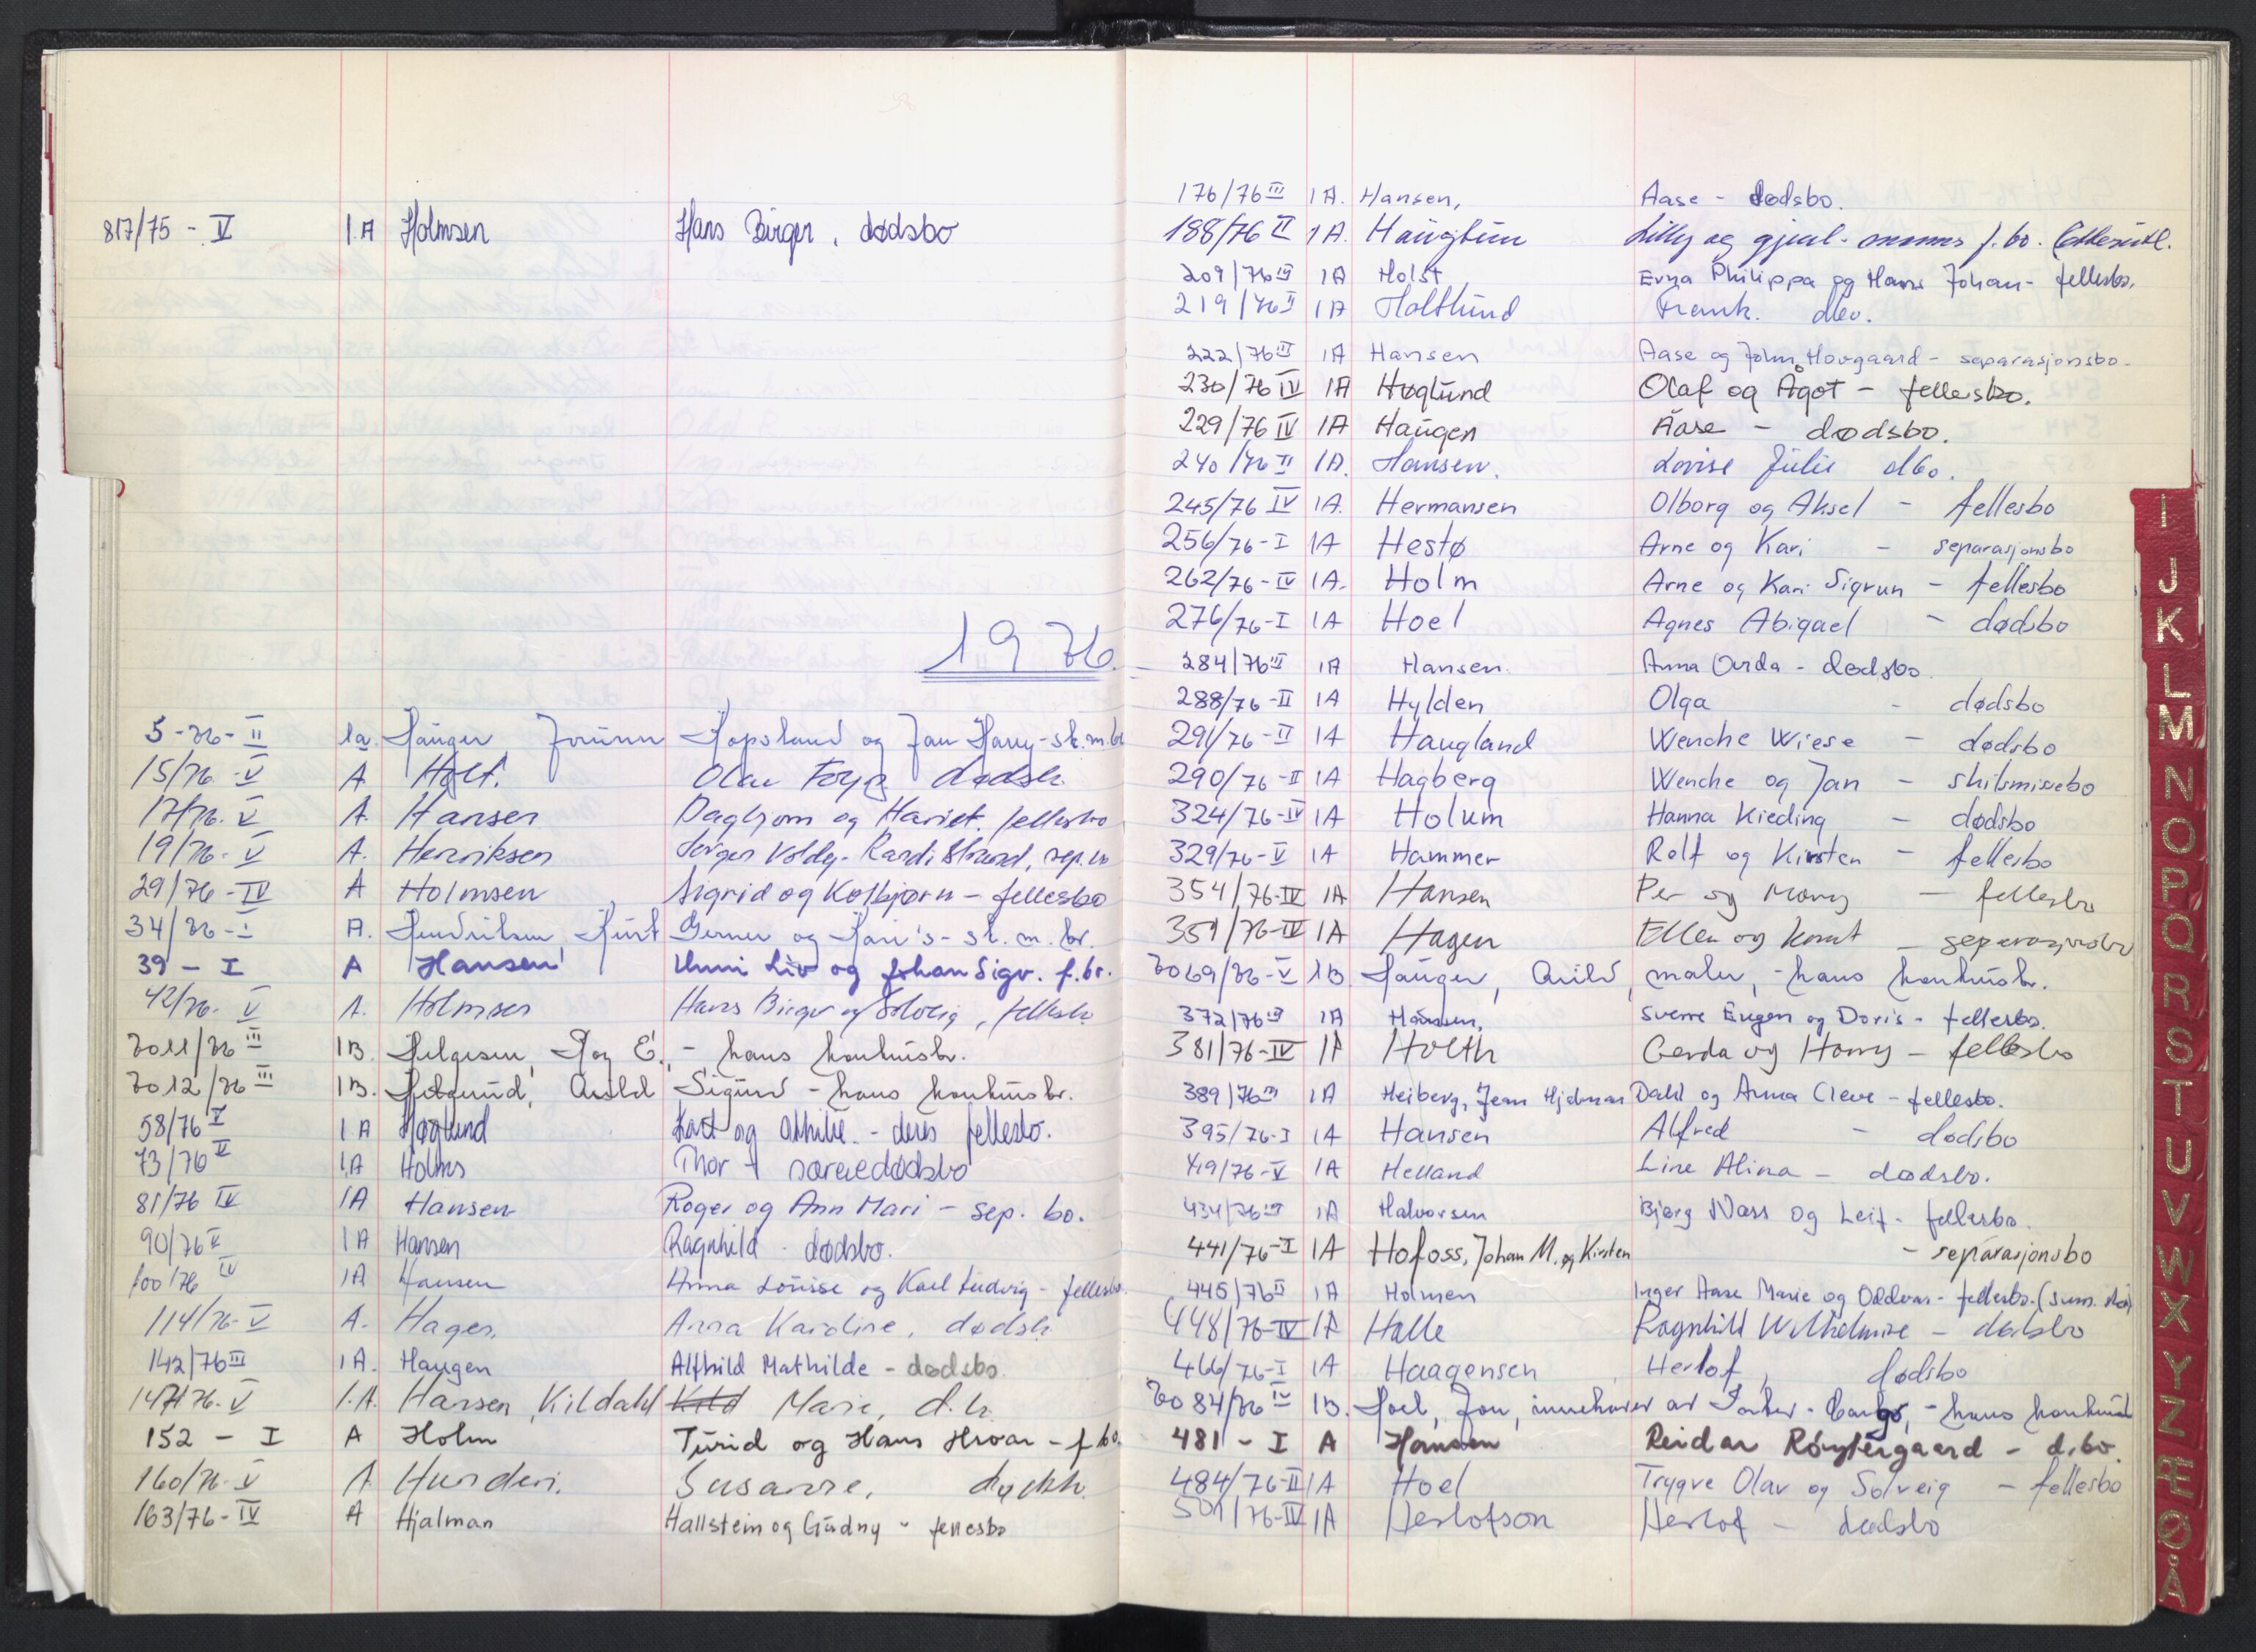 817/75 - V 1.A Holmsen Hans Birger, dødsbo
1976.
5-76-II 1a. Hauger Jorunn Hopsland og Jan Harry - sk.m.bo
15/76-V A Holt. Olav dødsb.
17/76-V A. Hansen Dagbjørn og Hariet. fellesbo
19/76-V A. Henriksen Jørgen Randi Strand, sep.bo
29/76-IV A Holmsen Sigrid og Kolbjørn - fellesbo
34/76-I A. Hendriksen, Kurt Gerner og Kari's - sk.m.bo.
39 - I A Hansen Unni Liv og Johan Sigv. f.bo.
42/76. V A. Holmsen Hans Birger og Solveig, fellesb.
3011/76 III 1B. Helgesen, Dag E. - hans konkursbo.
3012/76 III 1B. Helgerud, Arild Sigurd - hans konkursbo.
58/76 V 1A Høglund Karl og Othilie - deres fellesbo.
73/76 V 1.A Holms Thor - særeiedødsbo
81/76 IV 1A Hansen Roger og Ann Mari - sep. bo.
90/76 V 1A Hansen Ragnhild - dødsbo.
100/76 IV 1A Hansen Anna Louisse og Karl Ludvig - fellesbo.
114/76-V A. Hagen, Anna Karoline, dødsb.
142/76 III 1A. Haugen Alfhild Mathilde - dødsbo.
147/76-V 1.A. Hansen, Kildahl Kild Marie, d.b.
152 - I A Holm Turid og Hans Hroar - f.bo.
160/76-V A Hunderi. Susanne, dødsb.
163/76-IV A Hjalman Hallstein og Gudny - fellesbo
176/76 III 1A. Hansen, Aase - dødsbo.
188/76 II 1A. Haugtun Lilly og gjenl. manns f.bo.
209/76 III 1A Holst Evya Philippa og Hans Johan - fellesbo.
219/76 II 1A Holtlund Frank. dbo.
222/76 III 1A Hansen Aase og John Hovgaard - separasjonsbo.
230/76 IV 1A Høglund Olaf og Ågot - fellesbo.
229/76 IV 1A Haugen Åase - dødsbo.
240/76 II 1A. Hansen. Lovise Julie dbo.
245/76 IV 1A. Hermansen Olborg og Aksel - fellesbo
256/76-I 1A Hestø Arne og Kari - separasjonsbo
262/76-IV 1A. Holm Arne og Kari Sigrun - fellesbo
276/76-I 1A Hoel Agnes Abigael - dødsbo
284/76 III 1A Hansen. Anna Ovida - dødsbo.
288/76-II 1A Hylden Olga - dødsbo
291/76-II 1A Haugland Wenche Wiese - dødsbo
290/76-II 1A Hagberg Wenche og Jan - skilsmissebo
324/76-IV 1A Holum Hanna Kieding - dødsbo
329/76-V 1A Hammer Rolf og Kirsten - fellesbo
354/76-IV 1A Hansen Per og Mary - fellesbo
359/76-IV 1A Hagen Ellen og Knut - separasjonsbo
3069/76-V 1B. Hauger, Arild, maler, - hans konkursbo.
372/76 III 1A Hansen, Sverre Eugen og Doris - fellesbo.
381/76-IV 1A Holth Gerda og Harry - fellesbo
389/76 III 1A Heiberg, Jean Hjelmar Dahl og Anna Cleve - fellesbo.
395/76-I 1A Hansen Alfred - dødsbo
419/76-V 1A Helland Line Alina - dødsbo.
434/76 III 1A Halvorsen Bjørg Næss og Leif - fellesbo.
441/76-I 1A Hofoss, Johan M. og Kirsten - separasjonsbo
445/76 II 1A Holmen Inger Aase Marie og Oddvar - fellesbo.
448/76-IV 1A Halle Ragnhild Wilhelmine - dødsbo
466/76-I 1A Haagensen Herlof, dødsbo
3084/76 IV 1B. Hoel, Jon, innehaver av - hans konkursb
481 - I A Hansen Reidar - d.bo.
484/76-II 1A Hoel Trygve Olav og Solveig - fellesbo
501/76-IV 1A Herlofson Herlof - dødsbo
I
J
K
L
M
N
O
P
Q
R
S
T
U
V
W
X
Y
Z
Æ
Ø
Å